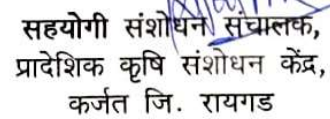 सहयोगी संशोधन संचालक,
प्रादेशिक कृषि संशोधन केंद्र,
कर्जत जि. रायगड